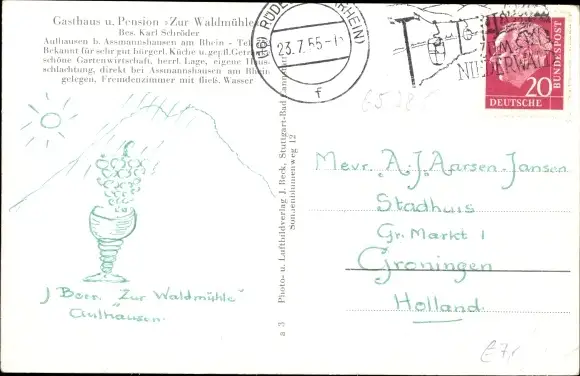 Gasthaus u. Pension »Zur Waldmühle
Bes. Karl Schröder
Aulhausen b. Assmannshausen am Rhein - Tel
Bekannt für sehr gut bürgerl. Küche u. gepfl. Getr
schöne Gartenwirtschaft, herrl. Lage, eigene Haus-
schlachtung, direkt bei Assmannshausen am Rhein
gelegen, Fremdenzimmer mit fließ. Wasser
23.7.55-1
f
NIEDERWALD
20
DEUTSCHE
BUNDESPOST
Photo- u. Luftbildverlag J. Beck, Stuttgart-Bad Cannstatt
Sonnenblumenweg 12
a 3
Mevr. A. J. Aarsen-Jansen
Stadhuis
Gr. Markt 1
Groningen
Holland
J Born "Zur Waldmühle"
Aulhausen
£7,-